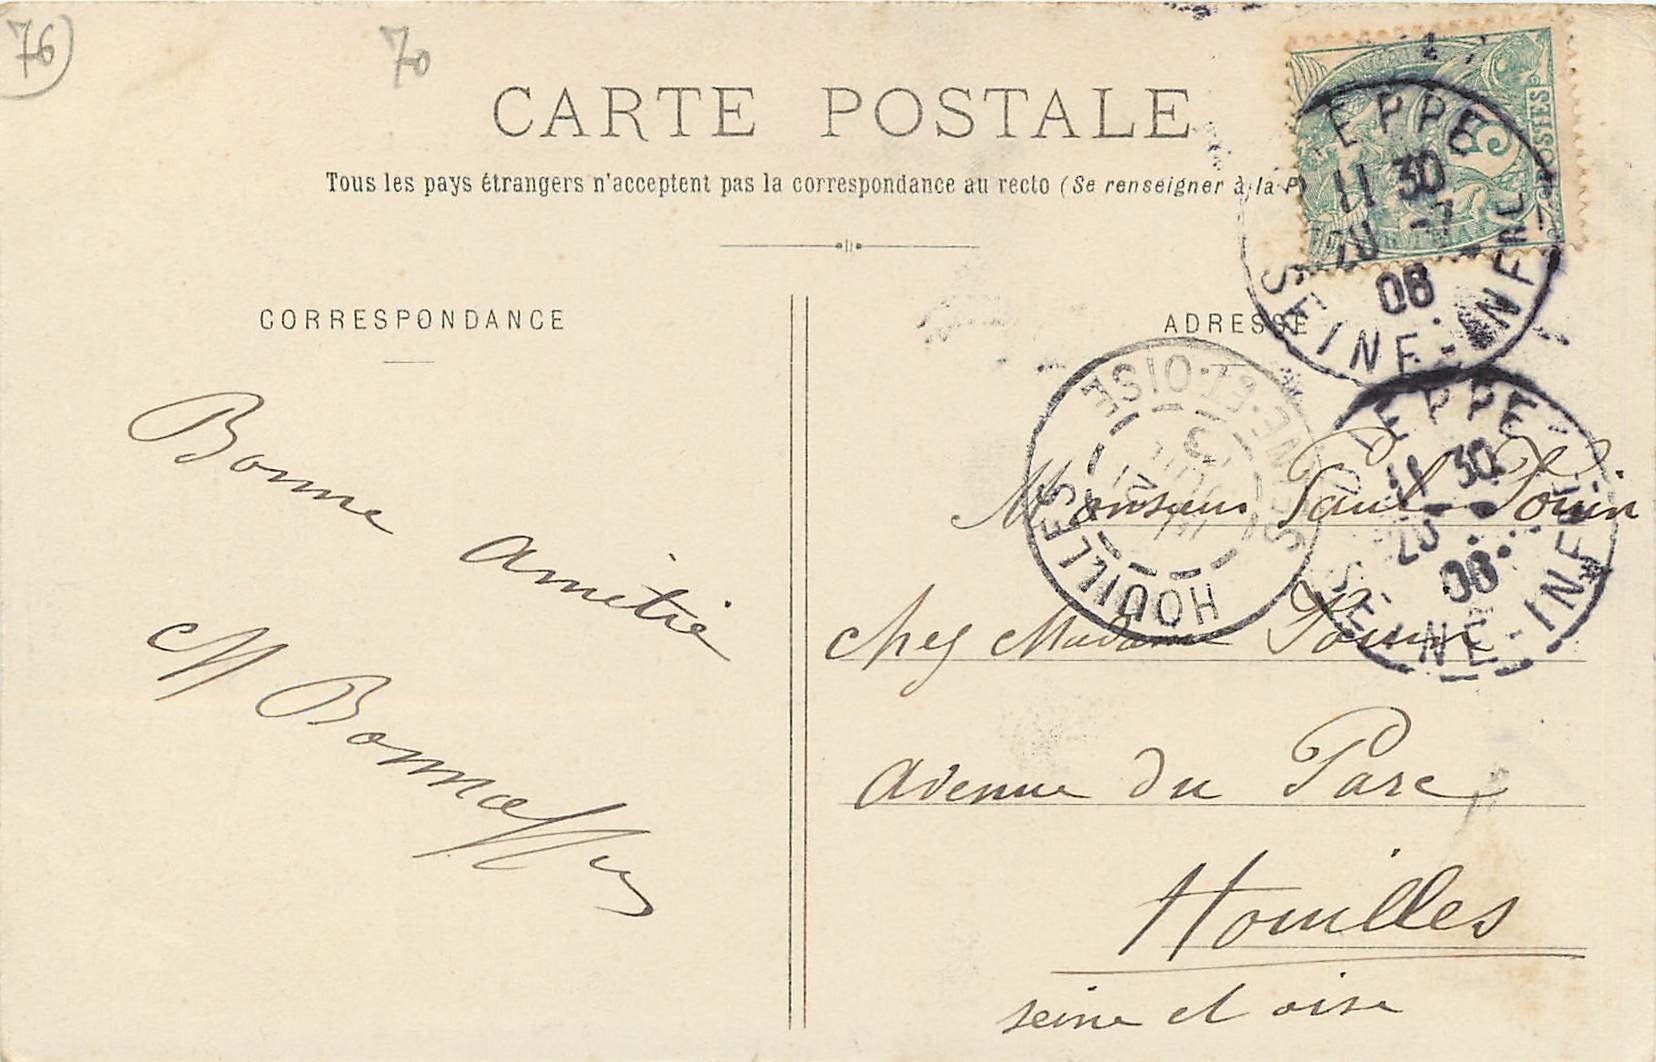 76
70
CARTE POSTALE
Tous les pays étrangers n'acceptent pas la correspondance au recto (Se renseigner à la P
5
POSTES
EPPE
11 30
20 -7
08
SEINE-INFRE
CORRESPONDANCE
ADRESSE
Bonne amitié
M Bonnaffey
HOUILLES
SEINE-ET-OISE
DIEPPE
11 30
20
08
SEINE-INFRE
Monsieur Paul Pouin
chez Madame Pouin
Avenue du Parc
Houilles
seine et oise